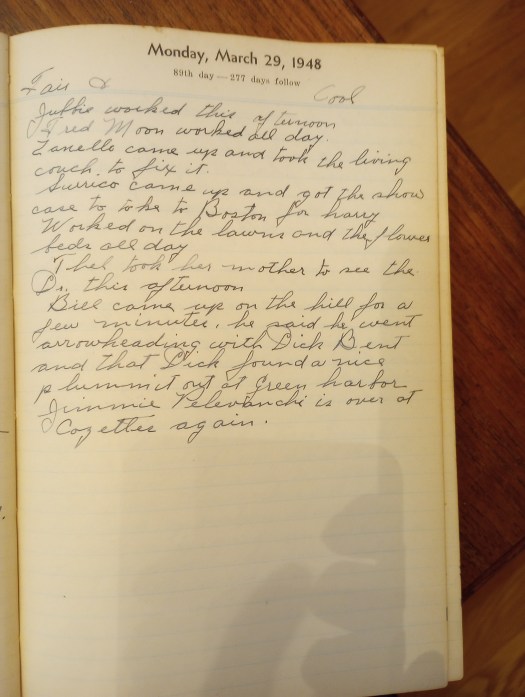 Monday, March 29, 1948
89th day — 277 days follow
Fair & Cool
worked this afternoon
Fred Moon worked all day.
Zanello came up and took the living
couch, to fix it.
Surrico came up and got the show
case to take to Boston for harry
Worked on the lawns and the flower
beds all day
Thel, took her mother to see the
Dr. this afternoon
Bill came up on the hill for a
few minutes. he said he went
arrowheading with Dick Bent
and that Dick found a nice
plummit out at Green harbor
Jimmie is over at
again.